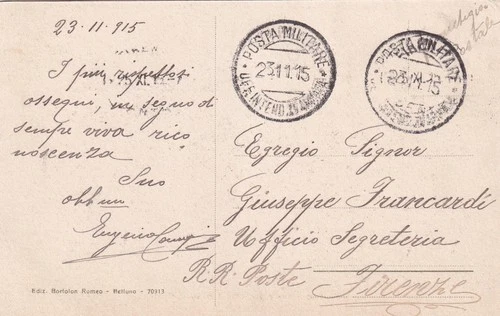 23.11.915
I più rispettosi
ossequi, in segno di
sempre viva rico
noscenza
Suo
Eugenio
POSTA MILITARE
23.11.15
POSTA MILITARE
Egregio Signor
Giuseppe Francardi
Ufficio Segreteria
RR. Poste
Firenze
Ediz. Bortolon Romeo - Belluno - 70311